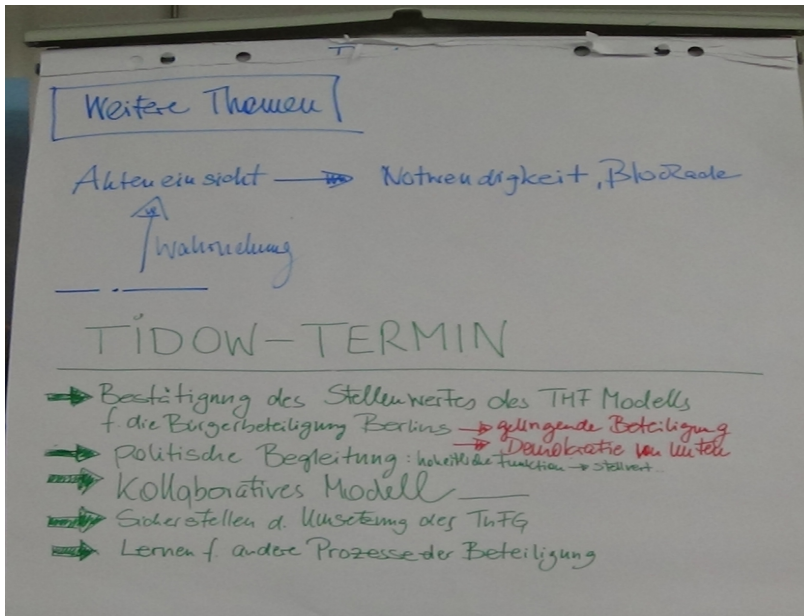 Weitere Themen
Akteneinsicht → Notwendigkeit, Blockade
Wahrnehmung
TIDOW-TERMIN
→ Bestätigung des Stellenwertes des THF Modells
f. die Bürgerbeteiligung Berlins → gelingende Beteiligung
→ Demokratie von unten
→ Politische Begleitung: hoheitliche Funktion → stellvert...
→ Kollaboratives Modell
→ Sicherstellen d. Umsetzung des ThFG
→ Lernen f. andere Prozesse der Beteiligung